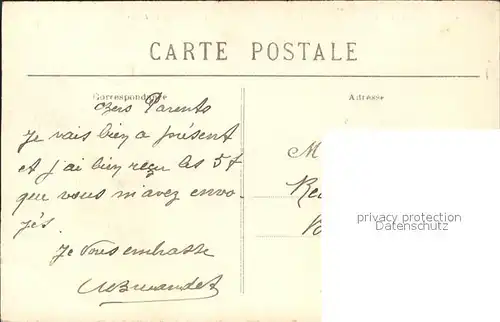 CARTE POSTALE
Correspondance
Adresse
chers Parents
Je vais bien a présent
et j'ai bien reçu les 5f
que vous m'avez envo
yés.
Je vous embrasse
M
privacy protection
Datenschutz